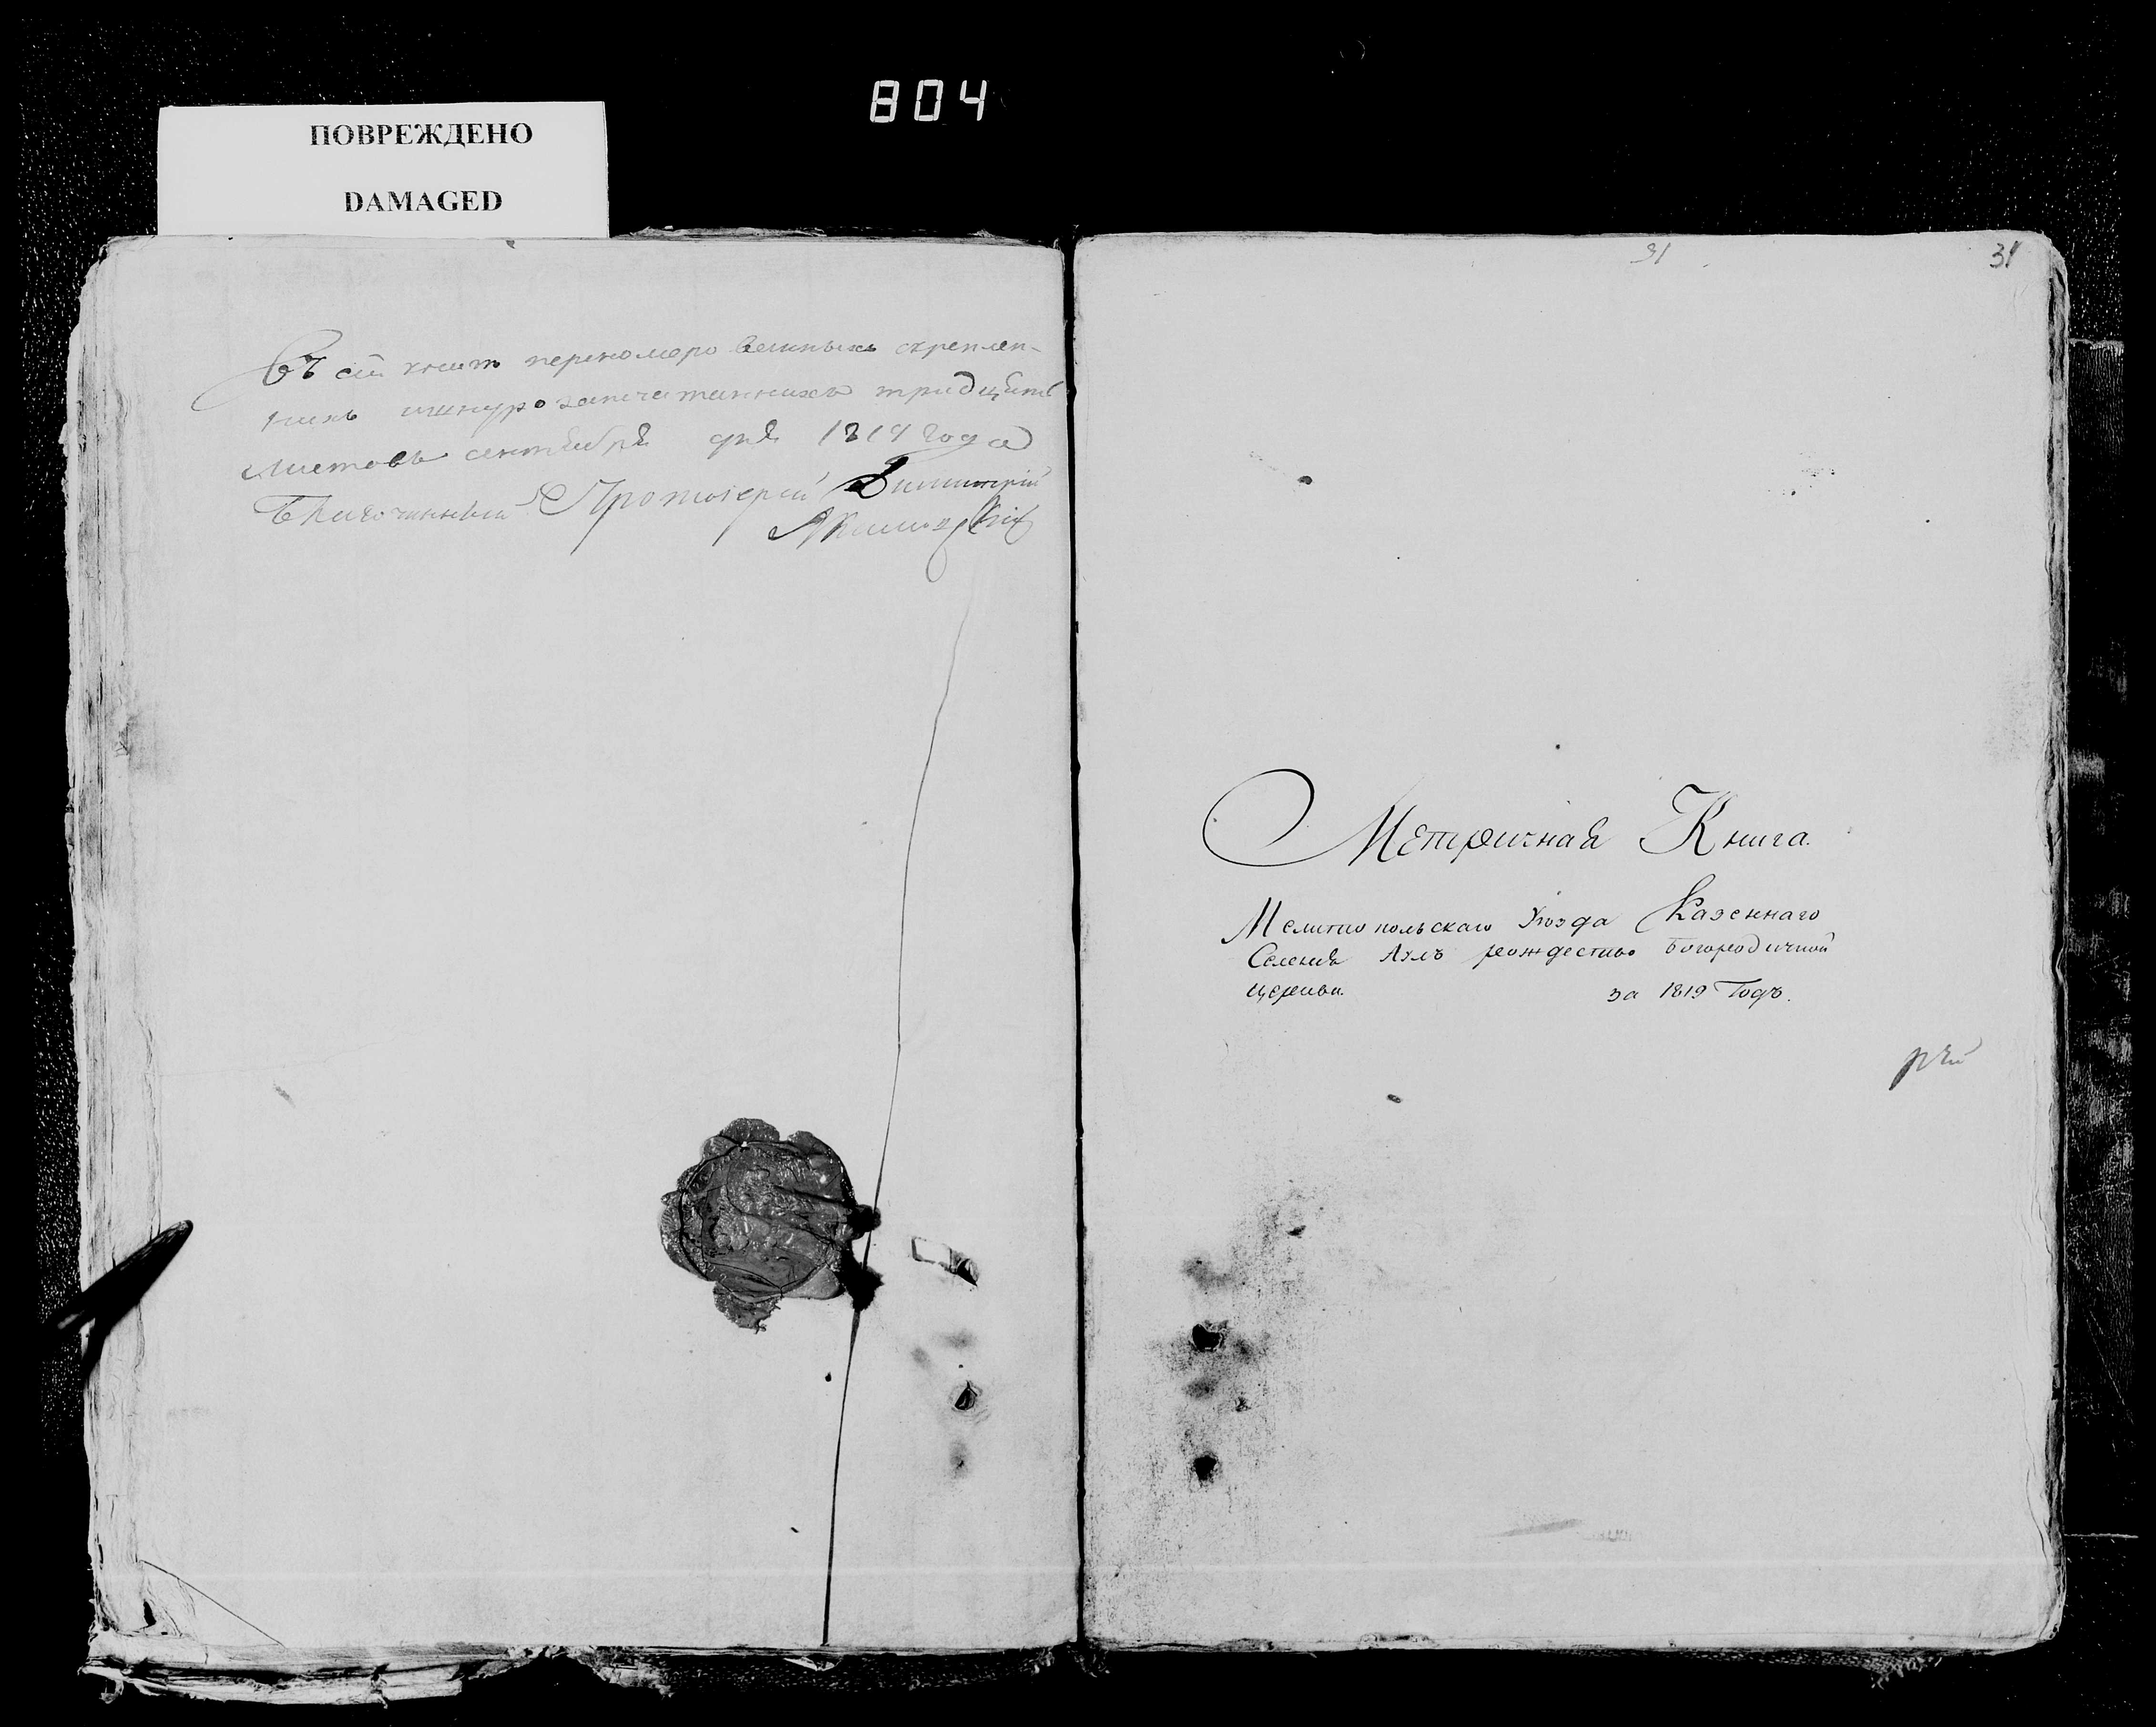 804
ПОВРЕЖДЕНО
DAMAGED
Въ сей книгѣ переномерованныхъ скреплен-
нихъ шнурозапечатанныхъ тридцать
листовъ сентября дня 1819 года
Благочинный Протоіерей Димитрій
31
31
Метричная Книга.
Мелитопольскаго Уѣзда Казеннаго
Селенія рождество Богородичной
церкви. за 1819 Годъ.